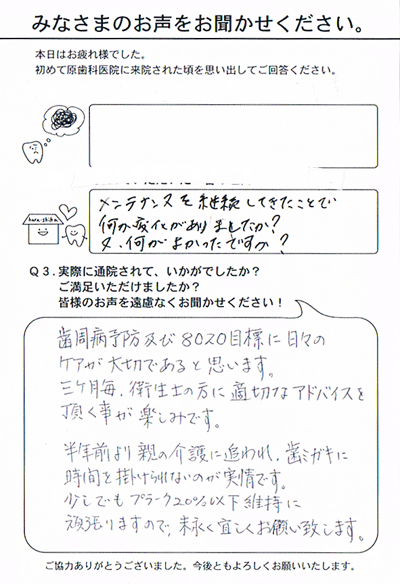 みなさまのお声をお聞かせください。
本日はお疲れ様でした。
初めて原歯科医院に来院された頃を思い出してご回答ください。
メンテナンスを継続してきたことで
何か変化がありましたか?
又、何がよかったですか?
hara-shika
Q3.実際に通院されて、いかがでしたか?
ご満足いただけましたか?
皆様のお声を遠慮なくお聞かせください!
歯周病予防及び8020目標に日々の
ケアが大切であると思います。
三ヶ月毎、衛生士の方に適切なアドバイスを
頂く事が楽しみです。
半年前より親の介護に追われ、歯ミガキに
時間を掛けられないのが実情です。
少しでもプラーク20%以下維持に
頑張りますので、末永く宜しくお願い致します。
ご協力ありがとうございました。今後ともよろしくお願いいたします。